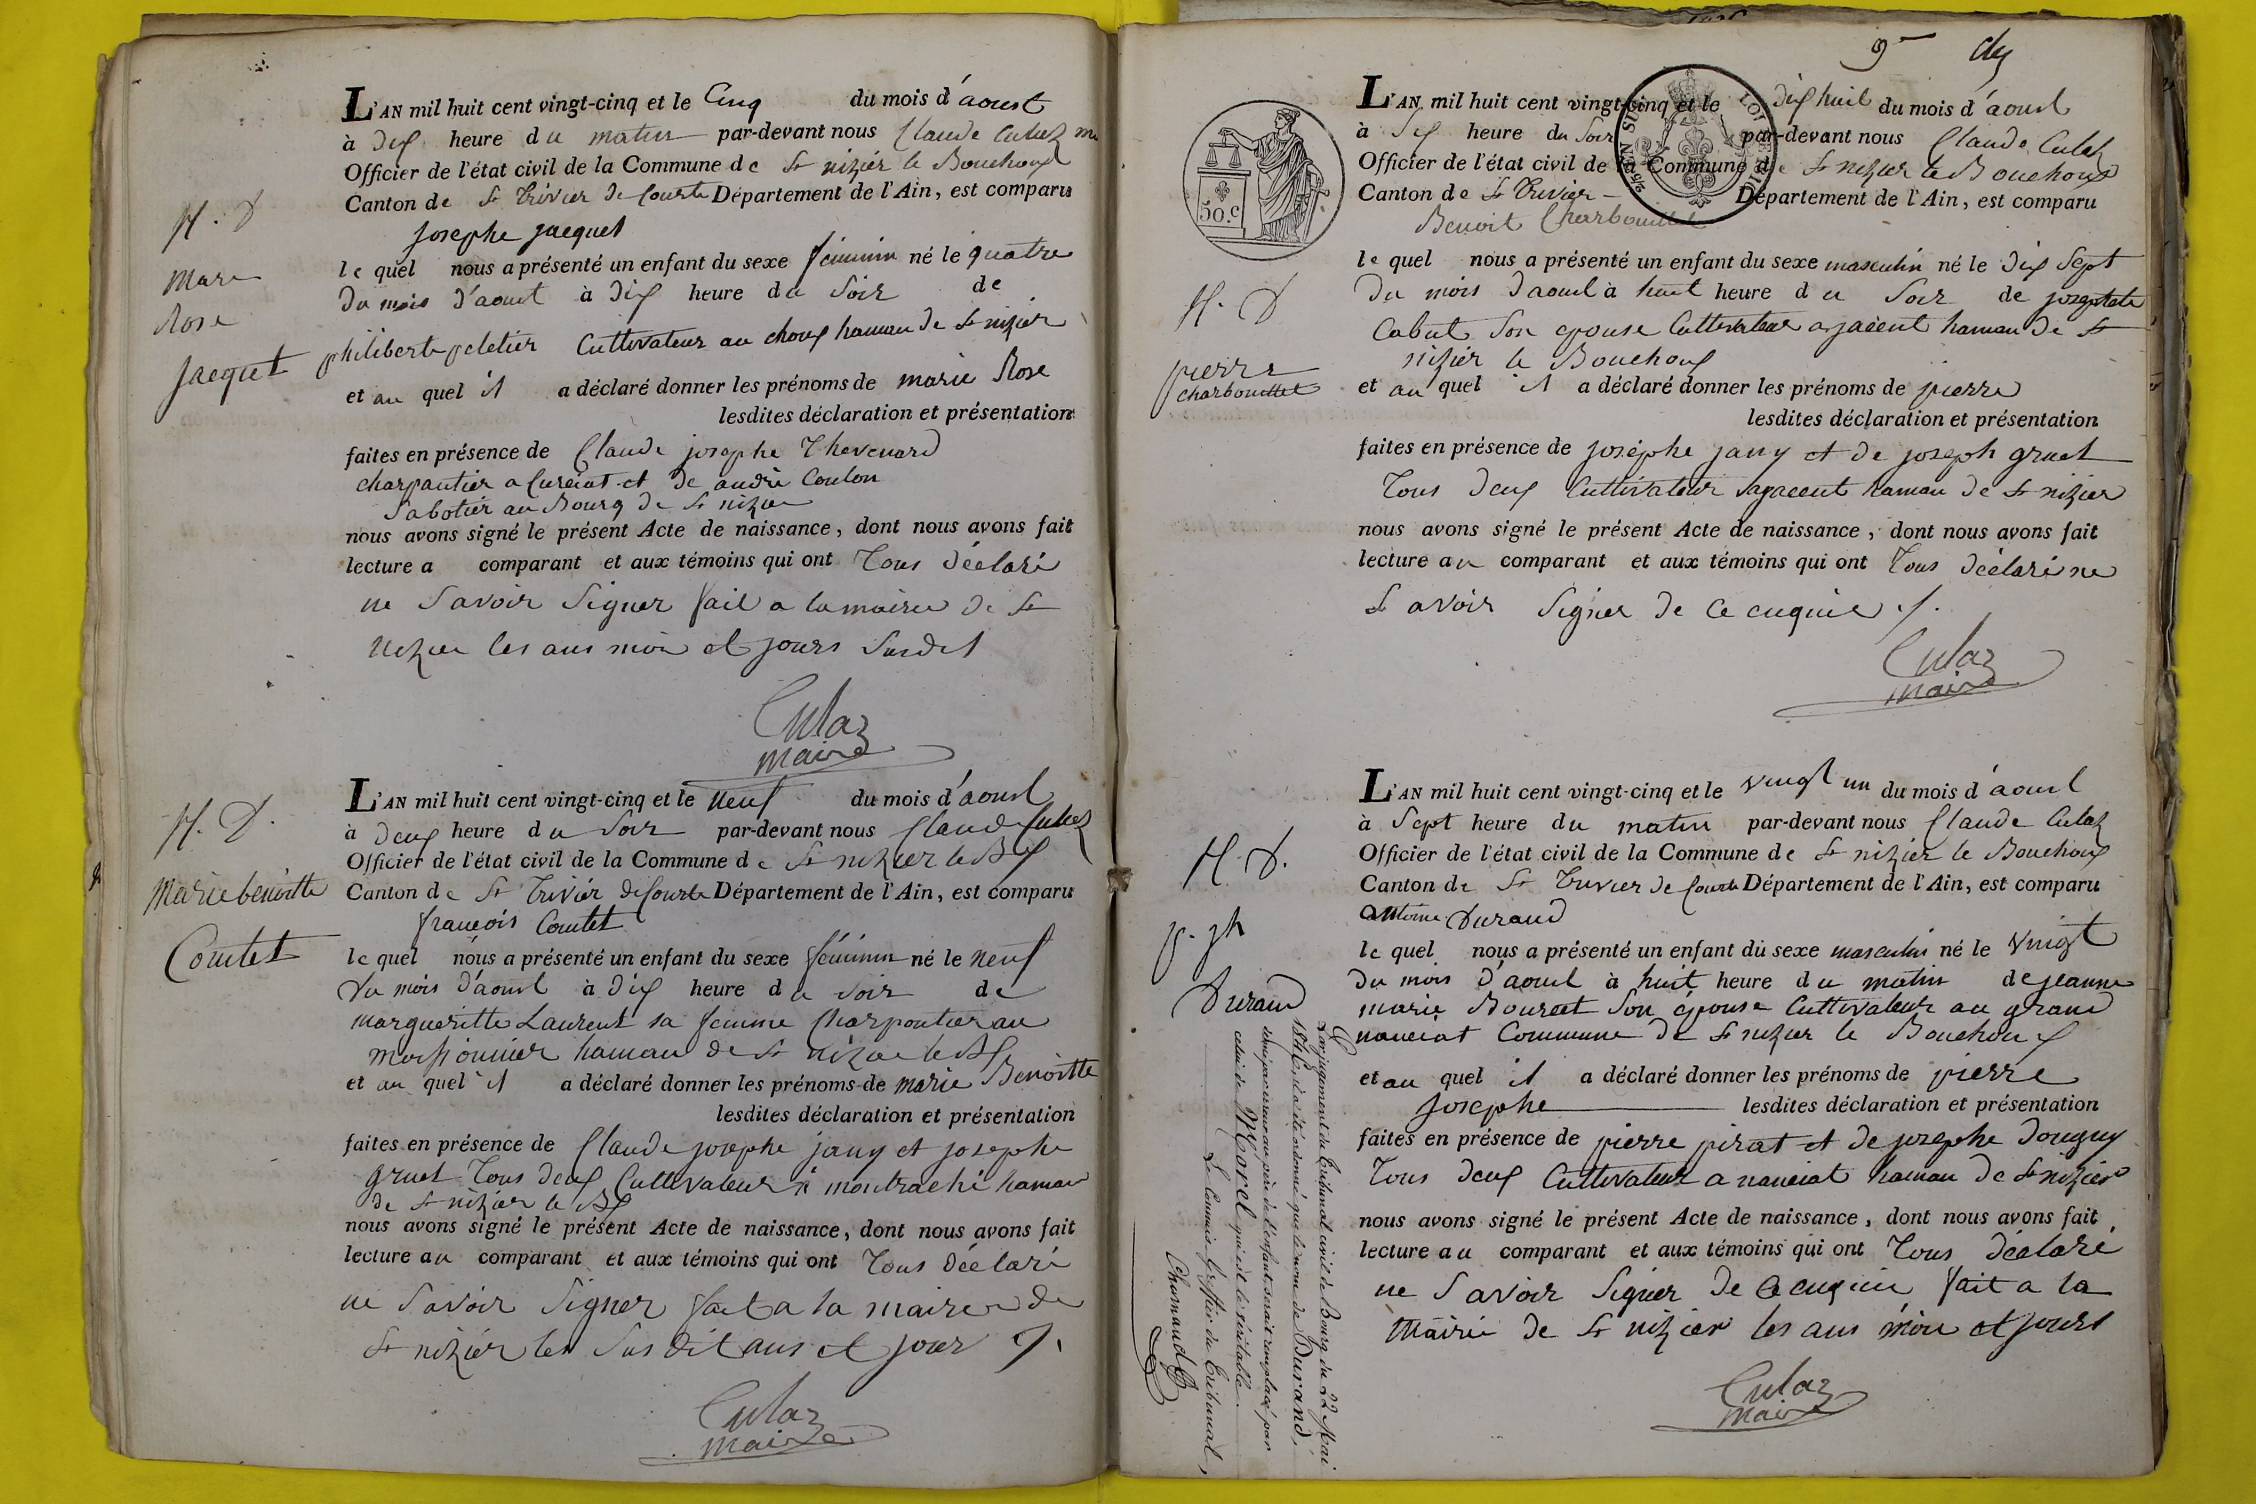 L'AN mil huit cent vingt-cinq et le Cinq du mois d'aoust
à dix heure du matin par-devant nous Claude Culaz
Officier de l'état civil de la Commune de St nizier le Bouchoux
Canton de St Trivier de Courte Département de l'Ain, est comparu
josephe jacquet
le quel nous a présenté un enfant du sexe féminin né le quatre
Du mois d'aoust à dix heure du Soir de
philiberte peletier Cultivateur au choux hameau de St nizier
et au quel il a déclaré donner les prénoms de marie Rose
lesdites déclaration et présentation
faites en présence de Claude josephe Thevenard
charpantier a Curciat et de andré Coulon
Sabotier au Bourg de St nizier
nous avons signé le présent Acte de naissance, dont nous avons fait
lecture a comparant et aux témoins qui ont Tous déclaré
ne Savoir Signer fait a la mairie de St
nizier les ans mois et jours Susdit
Culaz
maire
N. D
Marie
Rose
Jacquet
L'AN mil huit cent vingt-cinq et le neuf du mois d'aoust
à deux heure du Soir par-devant nous Claude Culaz
Officier de l'état civil de la Commune de St nizier le Bx
Canton de St Trivier de Courte Département de l'Ain, est comparu
françois Comtet
le quel nous a présenté un enfant du sexe féminin né le neuf
Du mois d'aoust à dix heure du Soir de
margueritte Laurent sa femme Charpontier au
moissonnier hameau de St nizier le Bx
et au quel il a déclaré donner les prénoms de marie Benoitte
lesdites déclaration et présentation
faites en présence de Claude josephe jany et josephe
gruet Tous deux Cultivateur à montraché hameau
de St nizier le Bx
nous avons signé le présent Acte de naissance, dont nous avons fait
lecture au comparant et aux témoins qui ont Tous déclaré
ne Savoir Signer fait a la mairie de
St nizier les Susdit ans et jour
Culaz
maire
N. D.
Marie benoitte
Comtet
9
L'AN mil huit cent vingt-cinq et le dix huit du mois d'aoust
à Six heure du Soir par-devant nous Claude Culaz
Officier de l'état civil de la Commune de St nizier le Bouchoux
Canton de St Trivier Département de l'Ain, est comparu
Benoit Charbouillet
le quel nous a présenté un enfant du sexe masculin né le dix Sept
Du mois d'aoust à huit heure du Soir de josephete
Cabut Son epouse Cultivateur ajacent hameau de St
nizier le Bouchoux
et au quel il a déclaré donner les prénoms de pierre
lesdites déclaration et présentation
faites en présence de josephe jany et de joseph gruet
Tous deux Cultivateur ajacent hameau de St nizier
nous avons signé le présent Acte de naissance, dont nous avons fait
lecture au comparant et aux témoins qui ont Tous déclaré ne
Savoir Signer de ce enquie
Culaz
maire
50.c
N. D
pierre
charbouillet
L'AN mil huit cent vingt-cinq et le vingt un du mois d'aoust
à Sept heure du matin par-devant nous Claude Culaz
Officier de l'état civil de la Commune de St nizier le Bouchoux
Canton de St Trivier de Courte Département de l'Ain, est comparu
antoine Durand
le quel nous a présenté un enfant du sexe masculin né le vingt
Du mois d'aoust à huit heure du matin de jeanne
marie Bourcet Son épouse Cultivateur au grand
nanciat Commune de St nizier le Bouchoux
et au quel il a déclaré donner les prénoms de pierre
josephe lesdites déclaration et présentation
faites en présence de pierre pirat et de josephe Donguy
Tous deux Cultivateur a nanciat hameau de St nizier
nous avons signé le présent Acte de naissance, dont nous avons fait
lecture au comparant et aux témoins qui ont Tous déclaré
ne Savoir Signer de ce enquie fait a la
Mairie de St nizier les ans mois et jours
Culaz
maire
N. D.
p. jh
Durand
Par jugement du Tribunal civil de Bourg du 22 Mai
il a été ordonné que le nom de Durand,
donné par erreur au père de l'enfant serait remplacé par
celui de Morel qui est le véritable.
Le Commis Greffier du Tribunal,
Charnaud